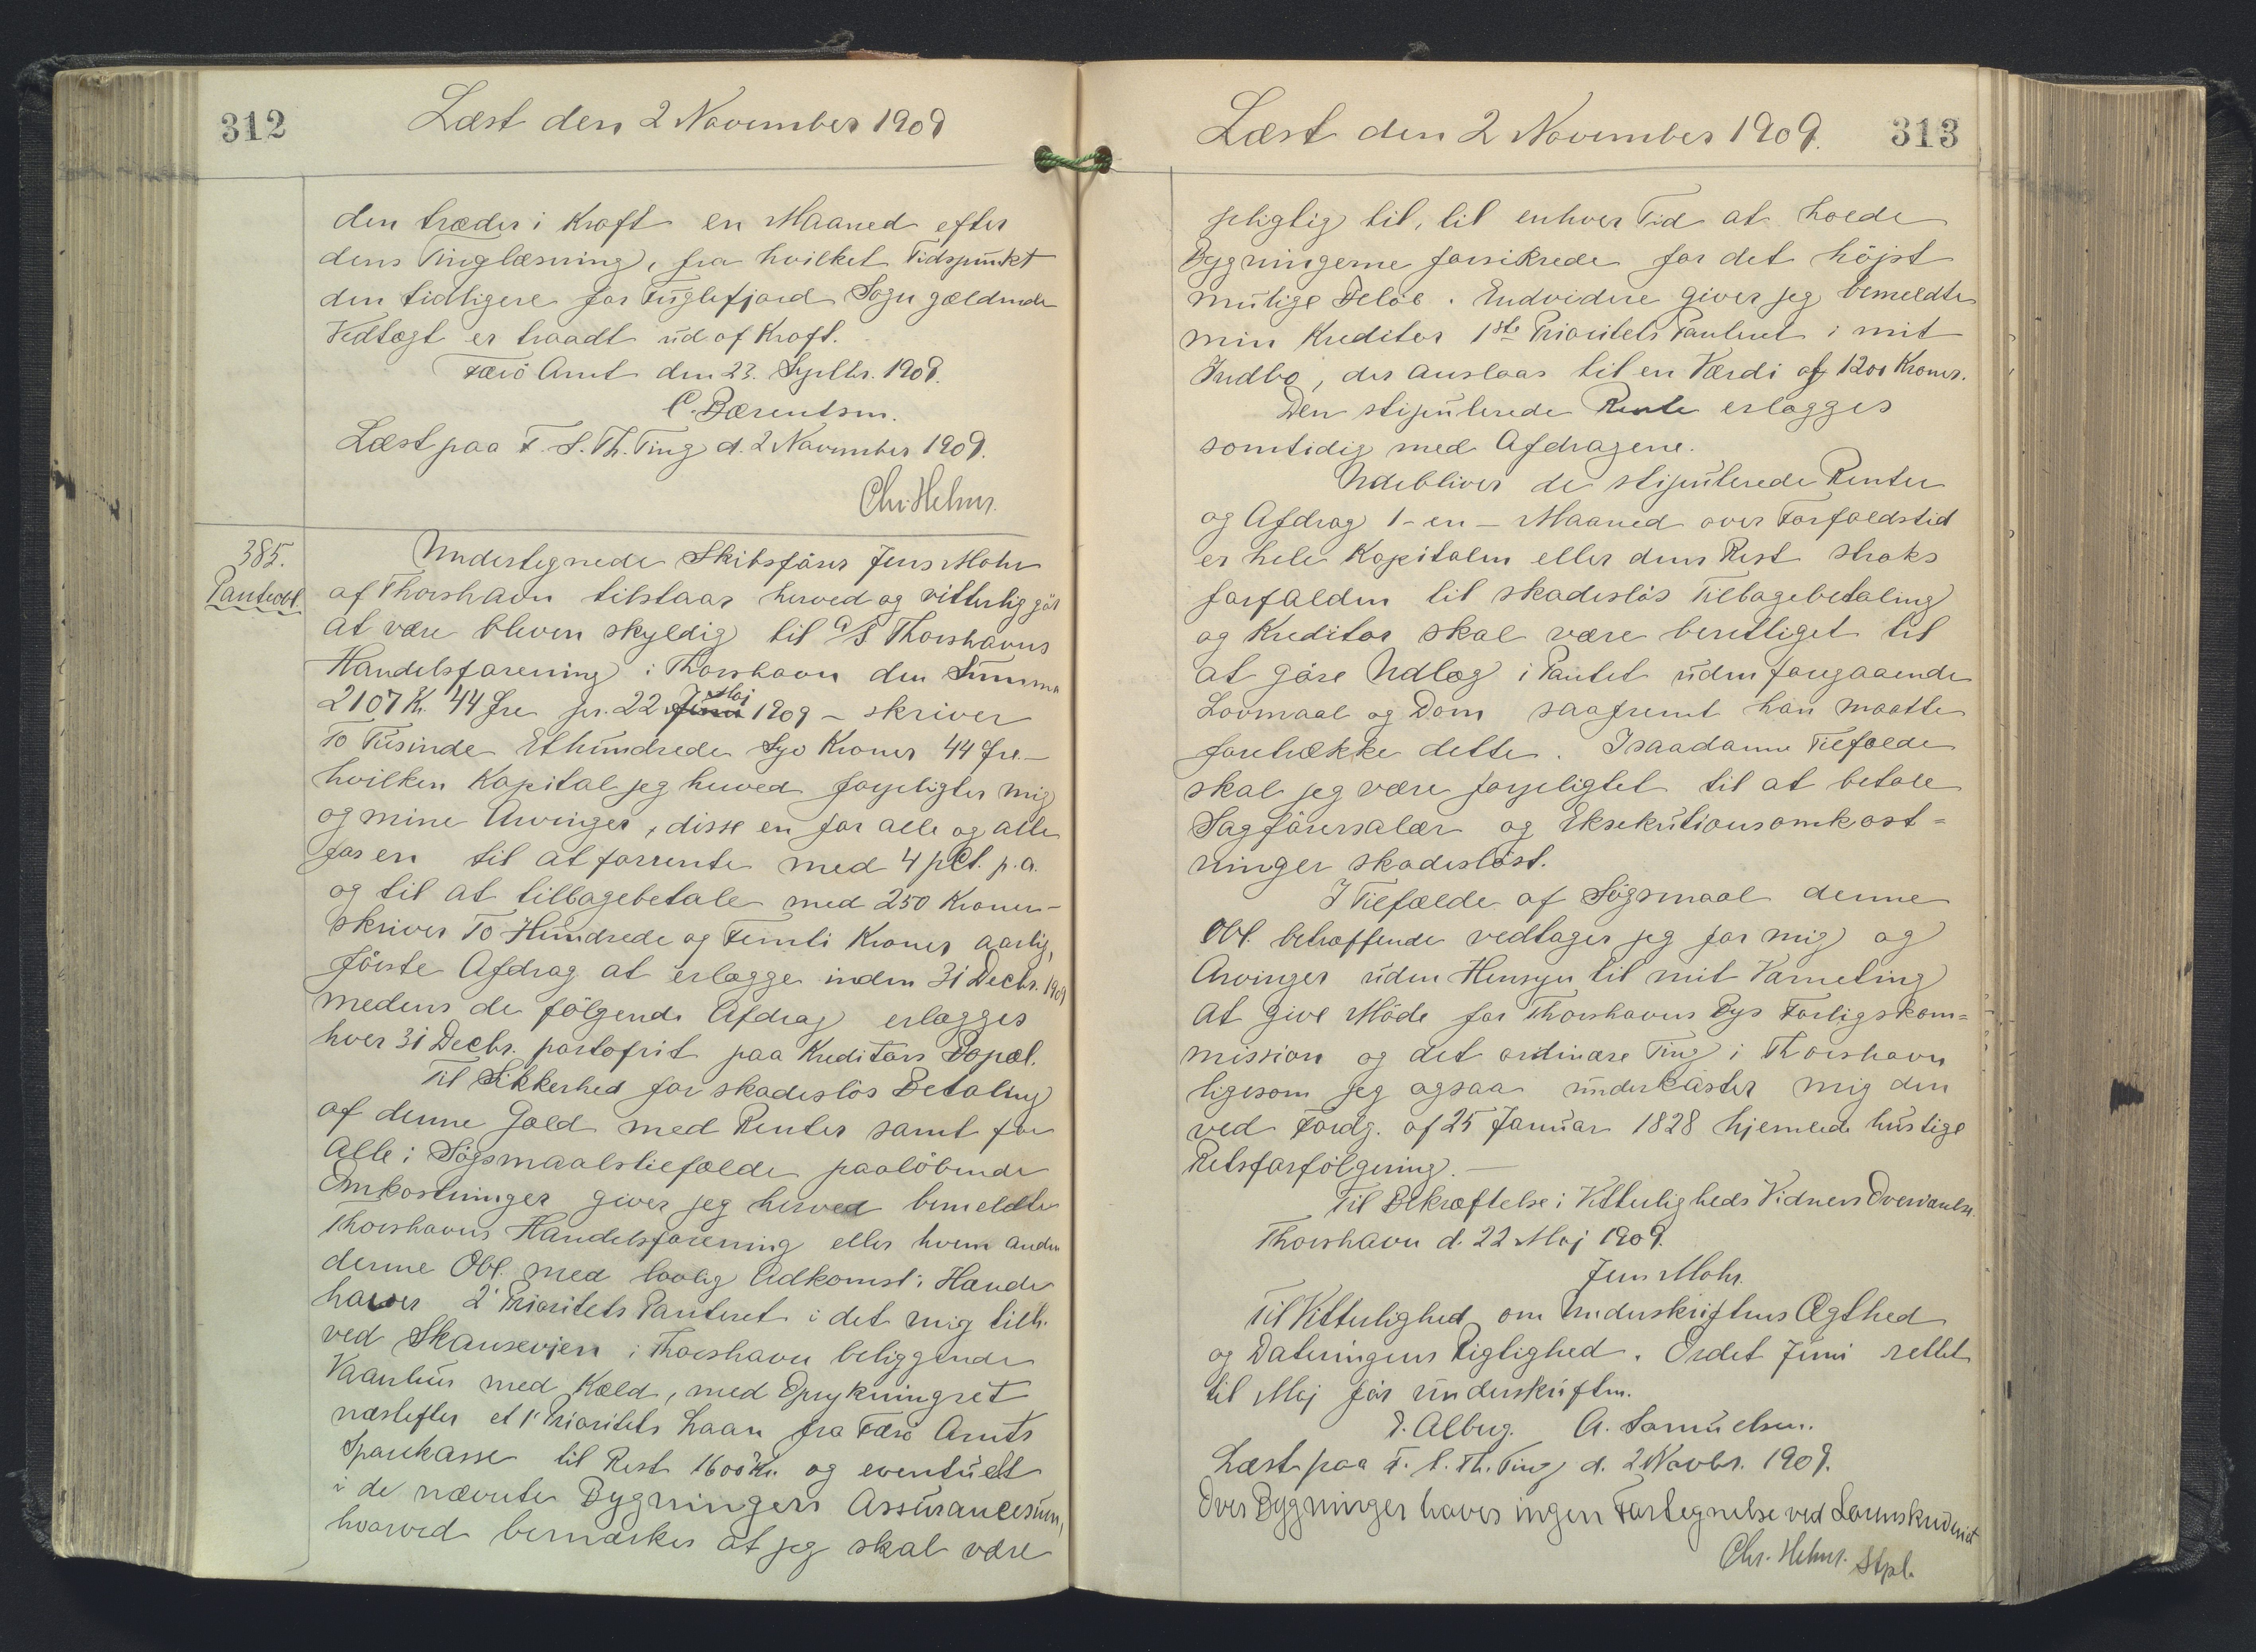 312
Læst den 2 November 1909
den træder i Kraft en Maaned efter
dens Tinglæsning, fra hvilket Tidspunkt
den tidligere for Fuglefjord Sogn gældende
Vedtægt er traadt ud af Kraft.
Færö Amt den 23. Septbr. 1909.
C. Bærentsen.
Læst paa F. S. Th. Ting d. 2 November 1909.
Chr. Helms.
385.
Panteobl.
Undertegnede Skibsfører Jens Mohr
af Thorshavn tilstaar herved og vitterlig gör
at være bleven skyldig til A/S Thorshavns
Handelsforening i Thorshavn den Summa
2107 Kr. 44 Øre pr. 22 Juni Maj 1909 - skriver
To Tusinde Ethundrede Syv Kroner 44 Øre -
hvilken Kapital jeg herved forpligter mig
og mine Arvinger, disse en for alle og alle
for en til at forrente med 4 pCt. p.a.
og til at tilbagebetale med 250 Kroner -
skriver To Hundrede og Femti Kroner aarlig,
förste Afdrag at erlægge inden 31 Decbr. 1909
medens de fölgende Afdrag erlægges
hver 31 Decbr. portofrit paa Kreditors Bopæl.
Til Sikkerhed for skadeslös Betaling
af denne Gæld med Renter samt for
Alle i Sögsmaalstilfælde paalöbende
Omkostninger giver jeg herved bemeldte
Thorshavns Handelsforening eller hvem anden
denne Obl. med lovlig Adkomst i Hænde
haver 2' Prioritets Panteret i det mig tilh.
ved Skansevejen i Thorshavn beliggende
Vaanhus med Kæld, med Oprykningret
næstefter et 1' Prioritets Laan fra Færö Amts
Sparekasse til Rest 1600 Kr. og eventuelt
i de nævnte Bygningers Assurancesum,
hvorved bemærkes at jeg skal være
Læst den 2 November 1909.
313
pligtig til, til enhver Tid at holde
Bygningerne forsikrede for det höjst
mulige Belöb. Endvidere giver jeg bemeldte
min Kreditor 1ste Prioritets Panteret i mit
Indbo, der anslaas til en Værdi af 1200 Kroner.
Den stipulerede Rente erlægges
samtidig med Afdragene.
Udebliver de stipulerede Renter
og Afdrag 1 - en - Maaned over Forfaldstid
er hele Kapitalen eller dens Rest straks
forfalden til skadeslös Tilbagebetaling
og Kreditor skal være berettiget til
at göre Udlæg i Pantet uden foregaaende
Lovmaal og Dom saafremt han maatte
foretrække dette. I saadanne Tilfælde
skal jeg være forpligtet til at betale
Sagförersalær og Eksekutionsomkost=
ninger skadeslöst.
I Tilfælde af Sögsmaal denne
Obl. betræffende vedtager jeg for mig og
Arvinger uden Hensyn til mit Værneting
at give Möde for Thorshavns Bys Forligskom=
mission og det ordinære Ting i Thorshavn
ligesom jeg ogsaa underkaster mig den
ved Fordg. af 25 Januar 1828 hjemlede hurtige
Retsforfölgning. -
Til Bekræftelse i Vitterligheds Vidners Overværelse.
Thorshavn d. 22 Maj 1909.
Jens Mohr.
Til Vitterlighed om Underskriftens Ægthed
og Dateringens Rigtighed. Ordet Juni rettet
til Maj för underskriften.
P. Alberg. A. Samuelsen.
Læst paa F. S. Th. Ting d. 2 Novbr. 1909.
Over Bygninger haves ingen Fortegnelse ved Sorenskriveriet
Chr. Helms. Stpl.